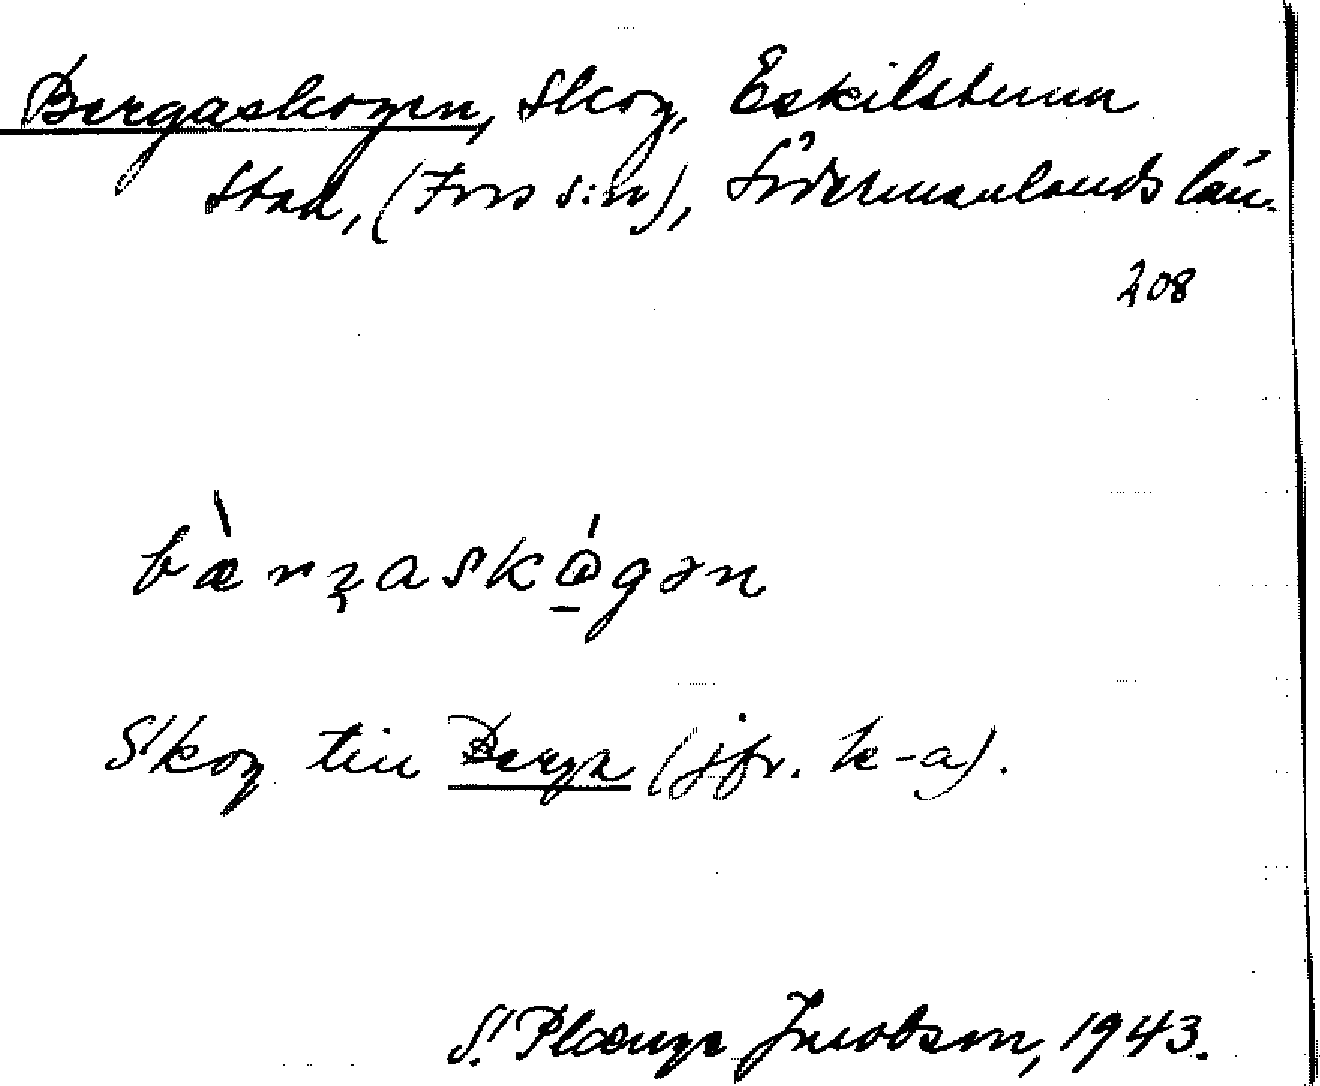 Bergaskogen, Skog, Eskilstuna
stad, (Fors s:n), Södermanlands län.
208
bærʒaskógən
Skog till Berga (jfr. k-a).
S. Plænge Jacobson, 1943.